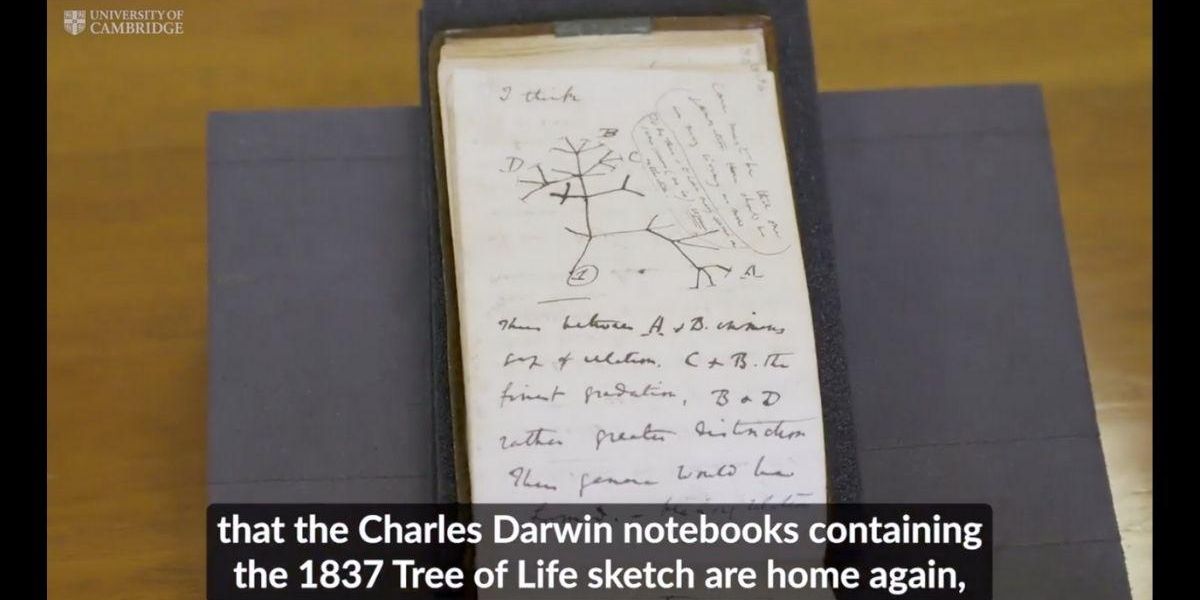 UNIVERSITY OF
CAMBRIDGE
I think
B
D
C
A
1
Thus between A & B. immens
gap of relation. C & B. the
finest gradation, B & D
rather greater distinction
Thus genera would be
formed. — bearing relation
that the Charles Darwin notebooks containing
the 1837 Tree of Life sketch are home again,